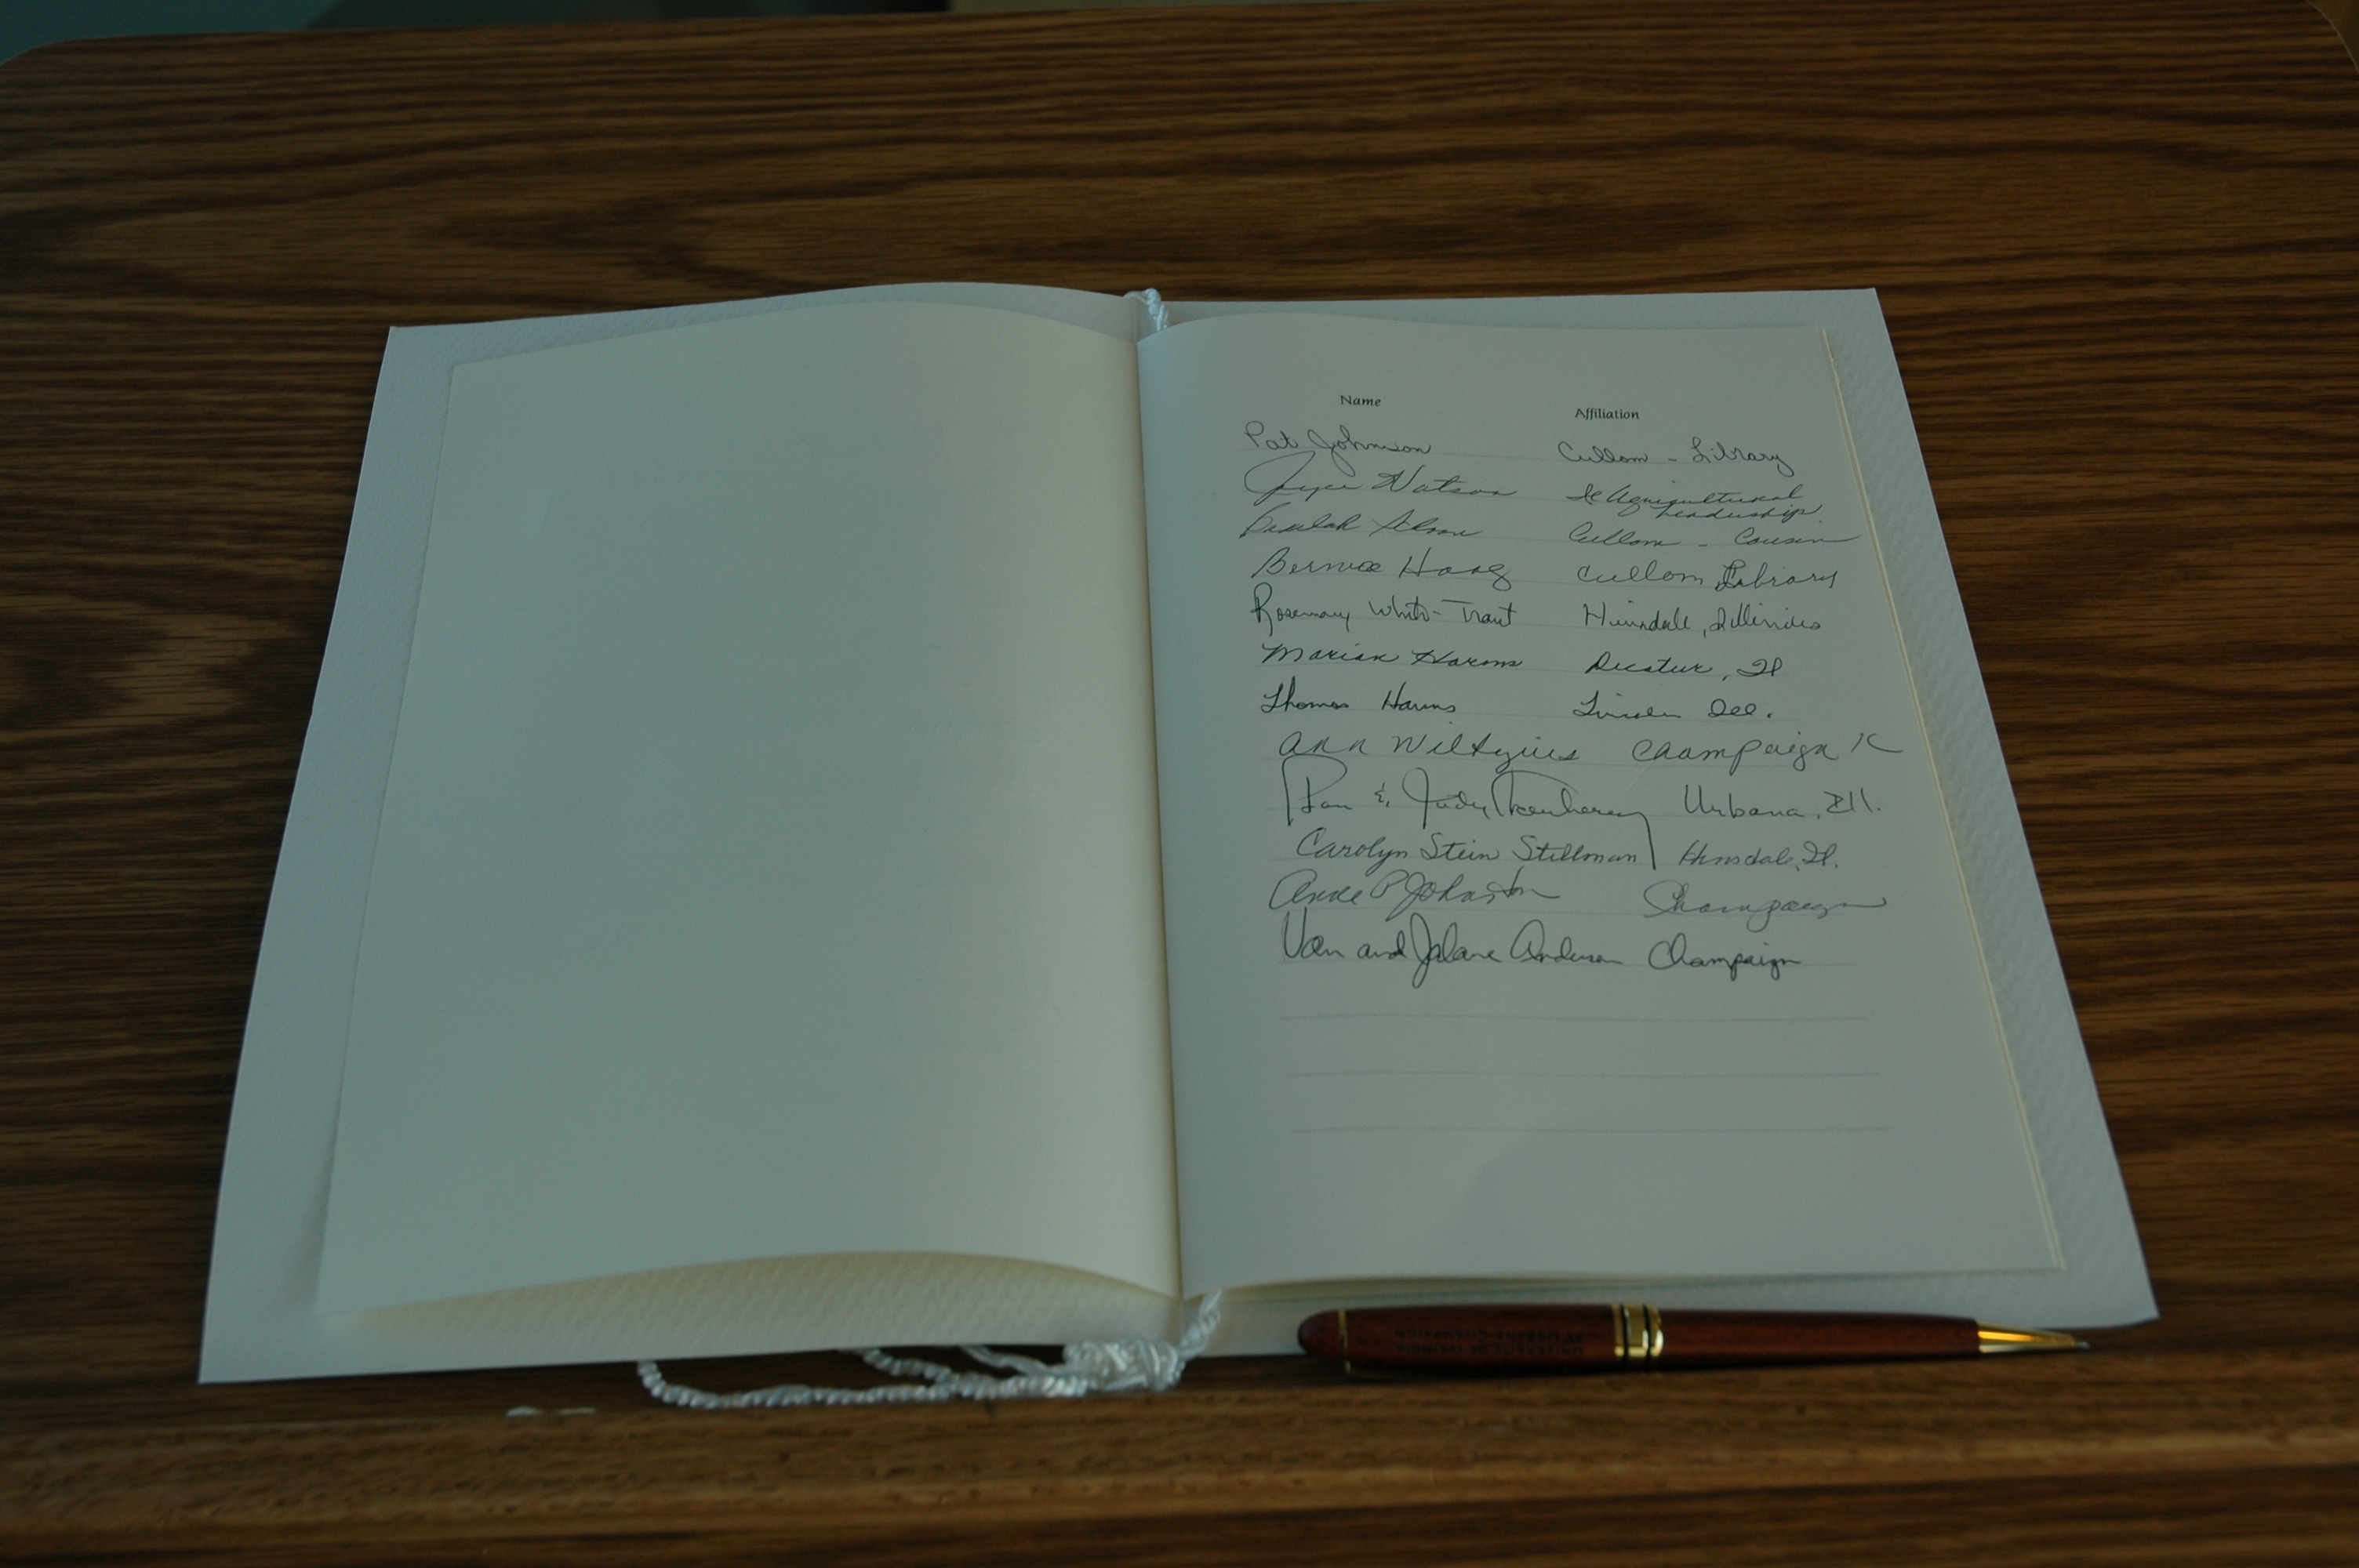 Name Affiliation
Pat Johnson Cullom - Library
Joyce Watson Il Agricultural
Leadership
Beulah Cullom - Cousin
Bernice Haag Cullom Library
Rosemary White-Traut Hinsdale, Illinois
Marian Harms Decatur, Il
Thomas Harms Lincoln Ill.
Ann Champaign IL
& Judy Urbana, Ill.
Carolyn Stein Stillman Hinsdale, Il.
Anne P Johnston Champaign
Van and Jalane Anderson Champaign
UNIVERSITY OF ILLINOIS
AT URBANA-CHAMPAIGN